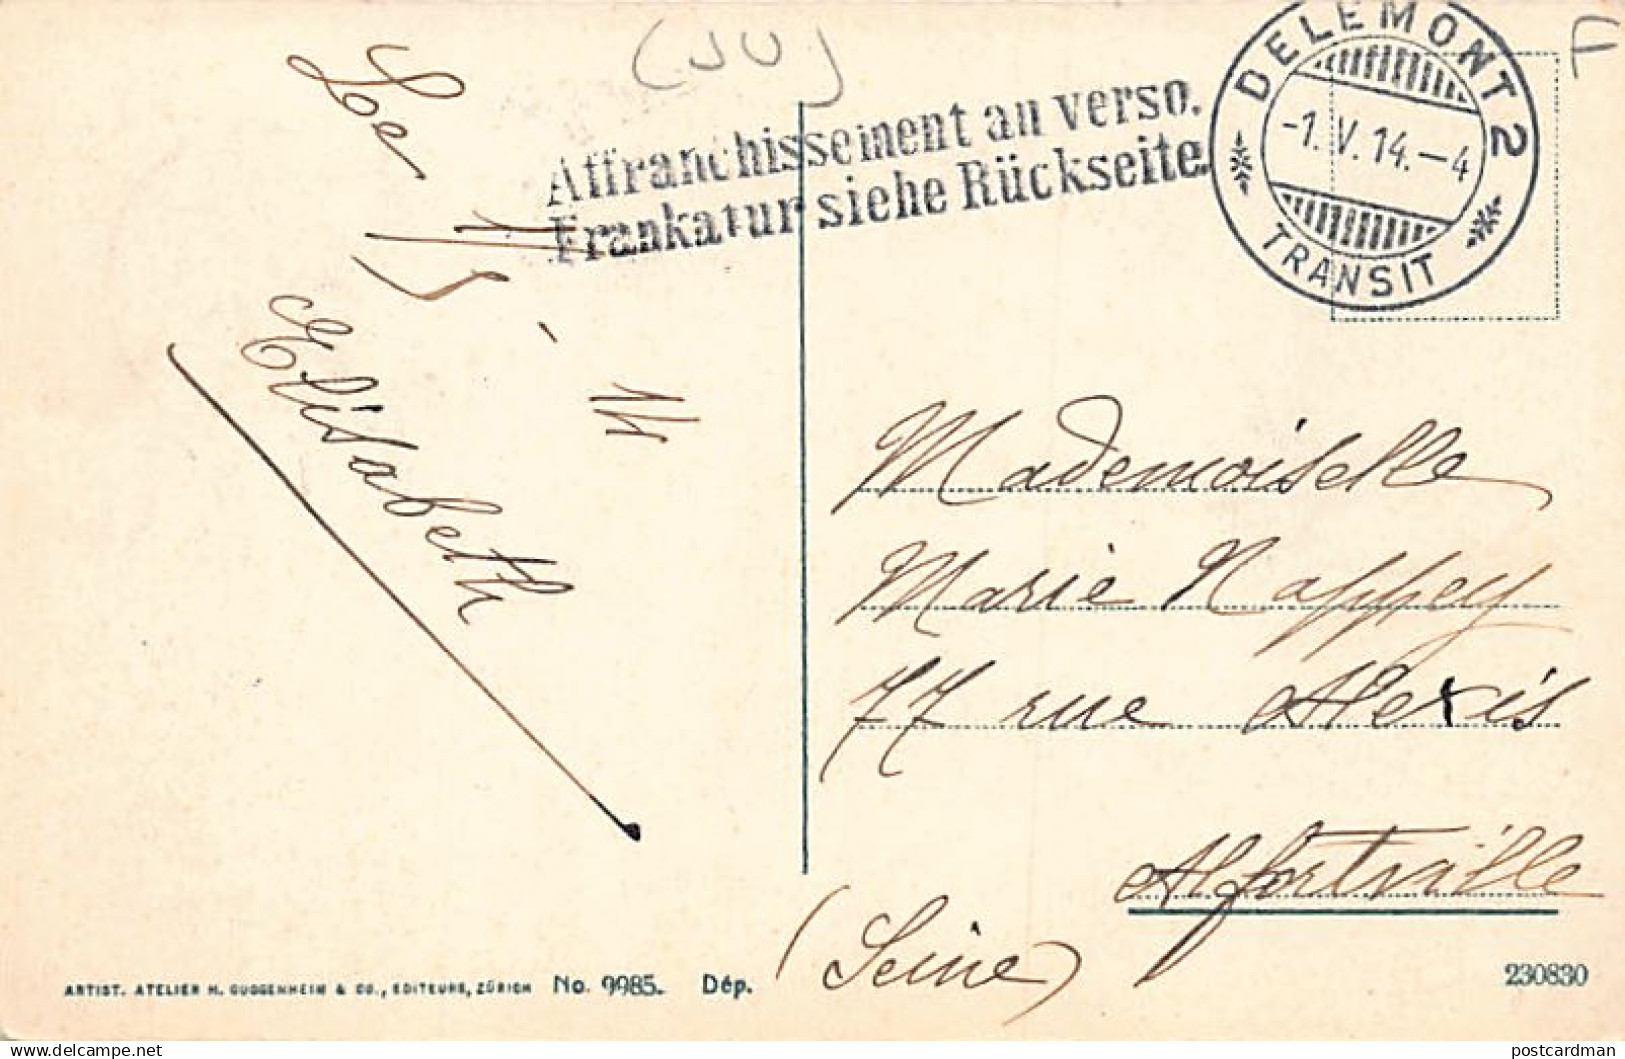 (JU)
Affranchissement au verso.
Frankatur siehe Rückseite.
DELEMONT 2
-1. V. 14. – 4
TRANSIT
Le 1/5 14
Elisabeth
Mademoiselle
Marie Nappey
77 rue Alexis
Alfortville
(Seine)
ARTIST. ATELIER H. GUGGENHEIM & CO., EDITEURS, ZÜRICH No. 9985. Dép.
230830
delcampe.net
postcardman